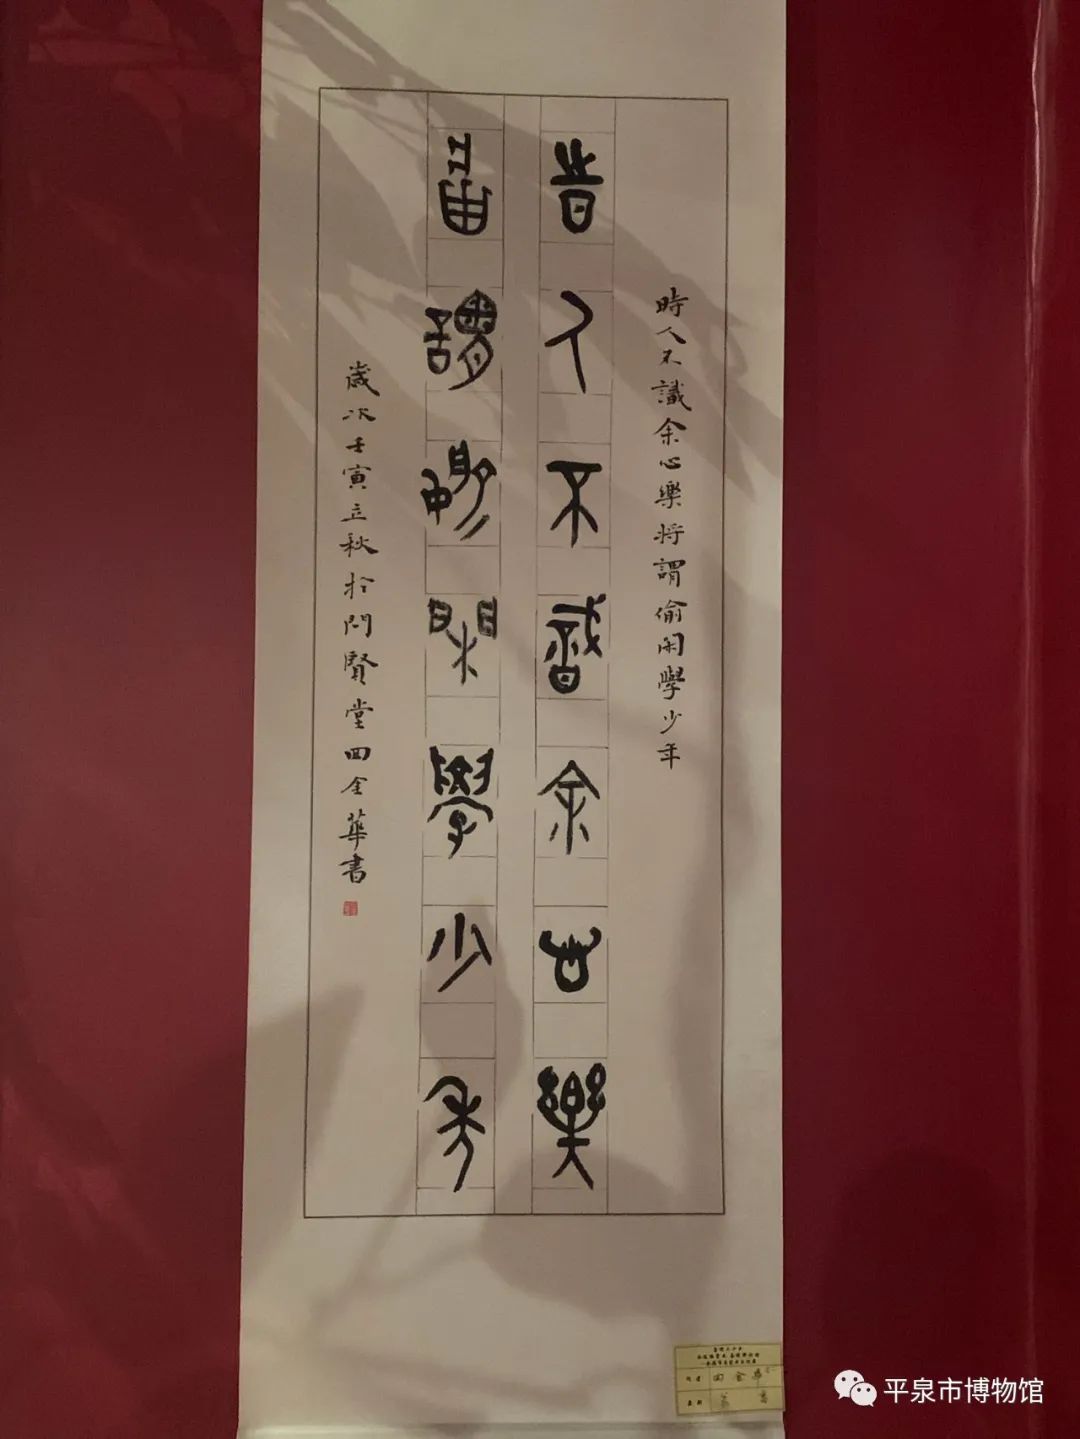 時人不識余心樂將謂偷閑學少年
時人不識余心樂
將謂偷閑學少年
歲次壬寅立秋於問賢堂田金華書
田金華
平泉市博物馆